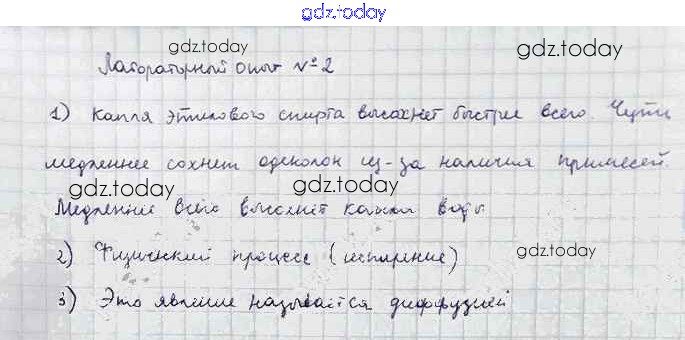 gdz.today
gdz.today gdz.today
Лабораторный опыт №2
1) Капля этилового спирта высохнет быстрее всего. Чуть
медленнее сохнет одеколон из-за наличия примесей.
gdz.today gdz.today gdz.today
Медленнее всего высохнет капля воды.
2) Физический процесс (испарение)
gdz.today
3) Это явление называется диффузией
gdz.today gdz.today gdz.today